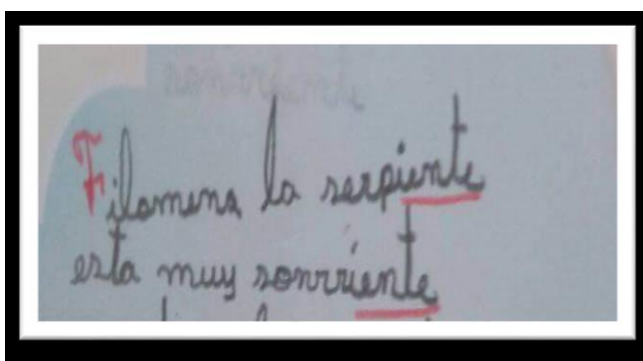 Filomena la serpiente
esta muy sonrriente